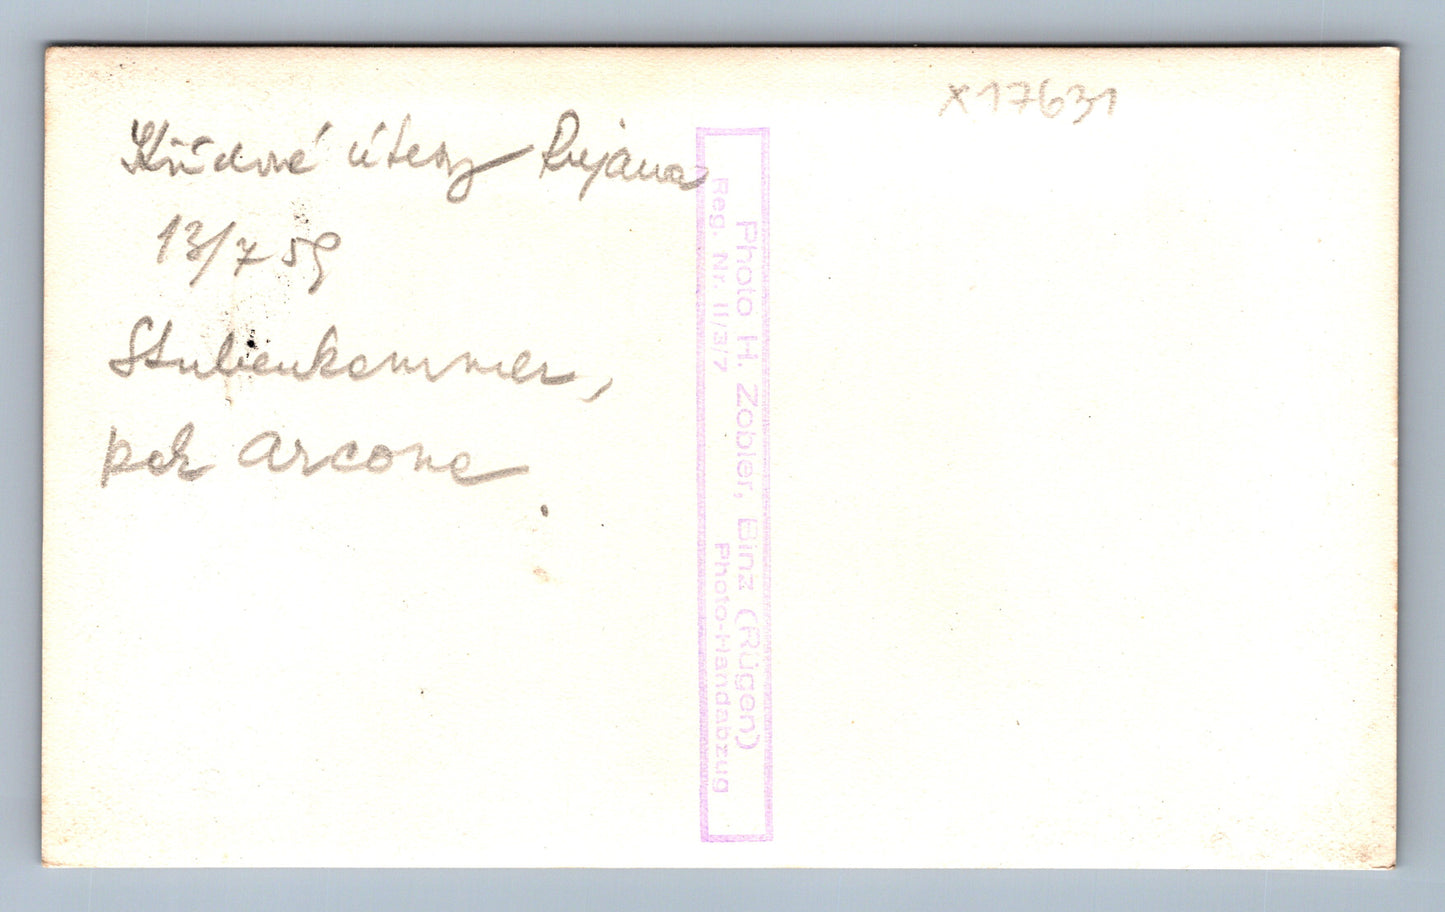 x17631
Křídové útesy Rujana
13/7 59
Stubenkammer,
pak Arcona
Photo H. Zobler, Binz (Rügen)
Reg. Nr. II/3/7 Photo-Handabzug